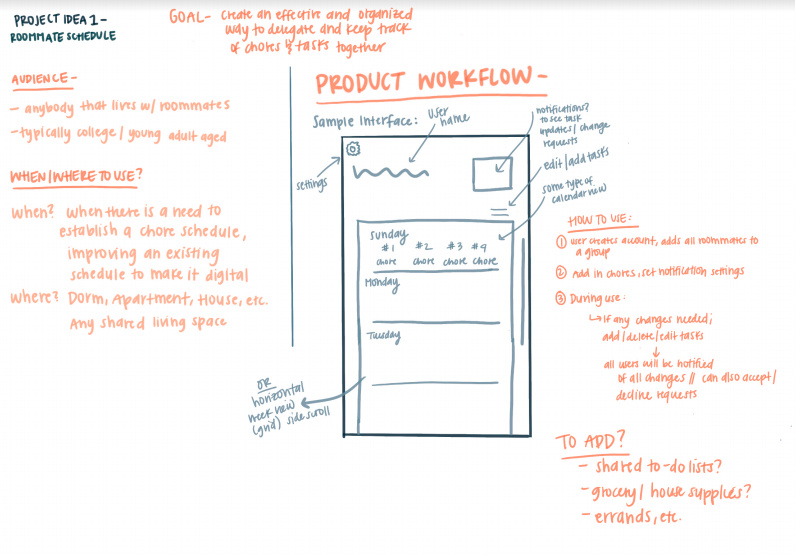 PROJECT IDEA 1-
ROOMMATE SCHEDULE
GOAL- create an effective and organized
way to delegate and keep track
of chores & tasks together
AUDIENCE-
- anybody that lives w/ roommates
- typically college / young adult aged
WHEN/WHERE TO USE?
when? when there is a need to
establish a chore schedule,
improving an existing
schedule to make it digital
where? Dorm, Apartment, House, etc.
Any shared living space
PRODUCT WORKFLOW-
Sample Interface:
user
name
notifications?
to see task
updates / change
requests
settings
edit/add tasks
some type of
calendar view
Sunday
#1 #2 #3 #4
chore chore chore chore
Monday
Tuesday
OR
horizontal
week view
(grid) side scroll
HOW TO USE:
① user creates account, adds all roommates to
a group
② Add in chores, set notification settings
③ During use:
↳ If any changes needed;
add/delete/edit tasks
↓
all users will be notified
of all changes // can also accept/
decline requests
TO ADD?
- shared to-do lists?
- grocery/ house supplies?
- errands, etc.